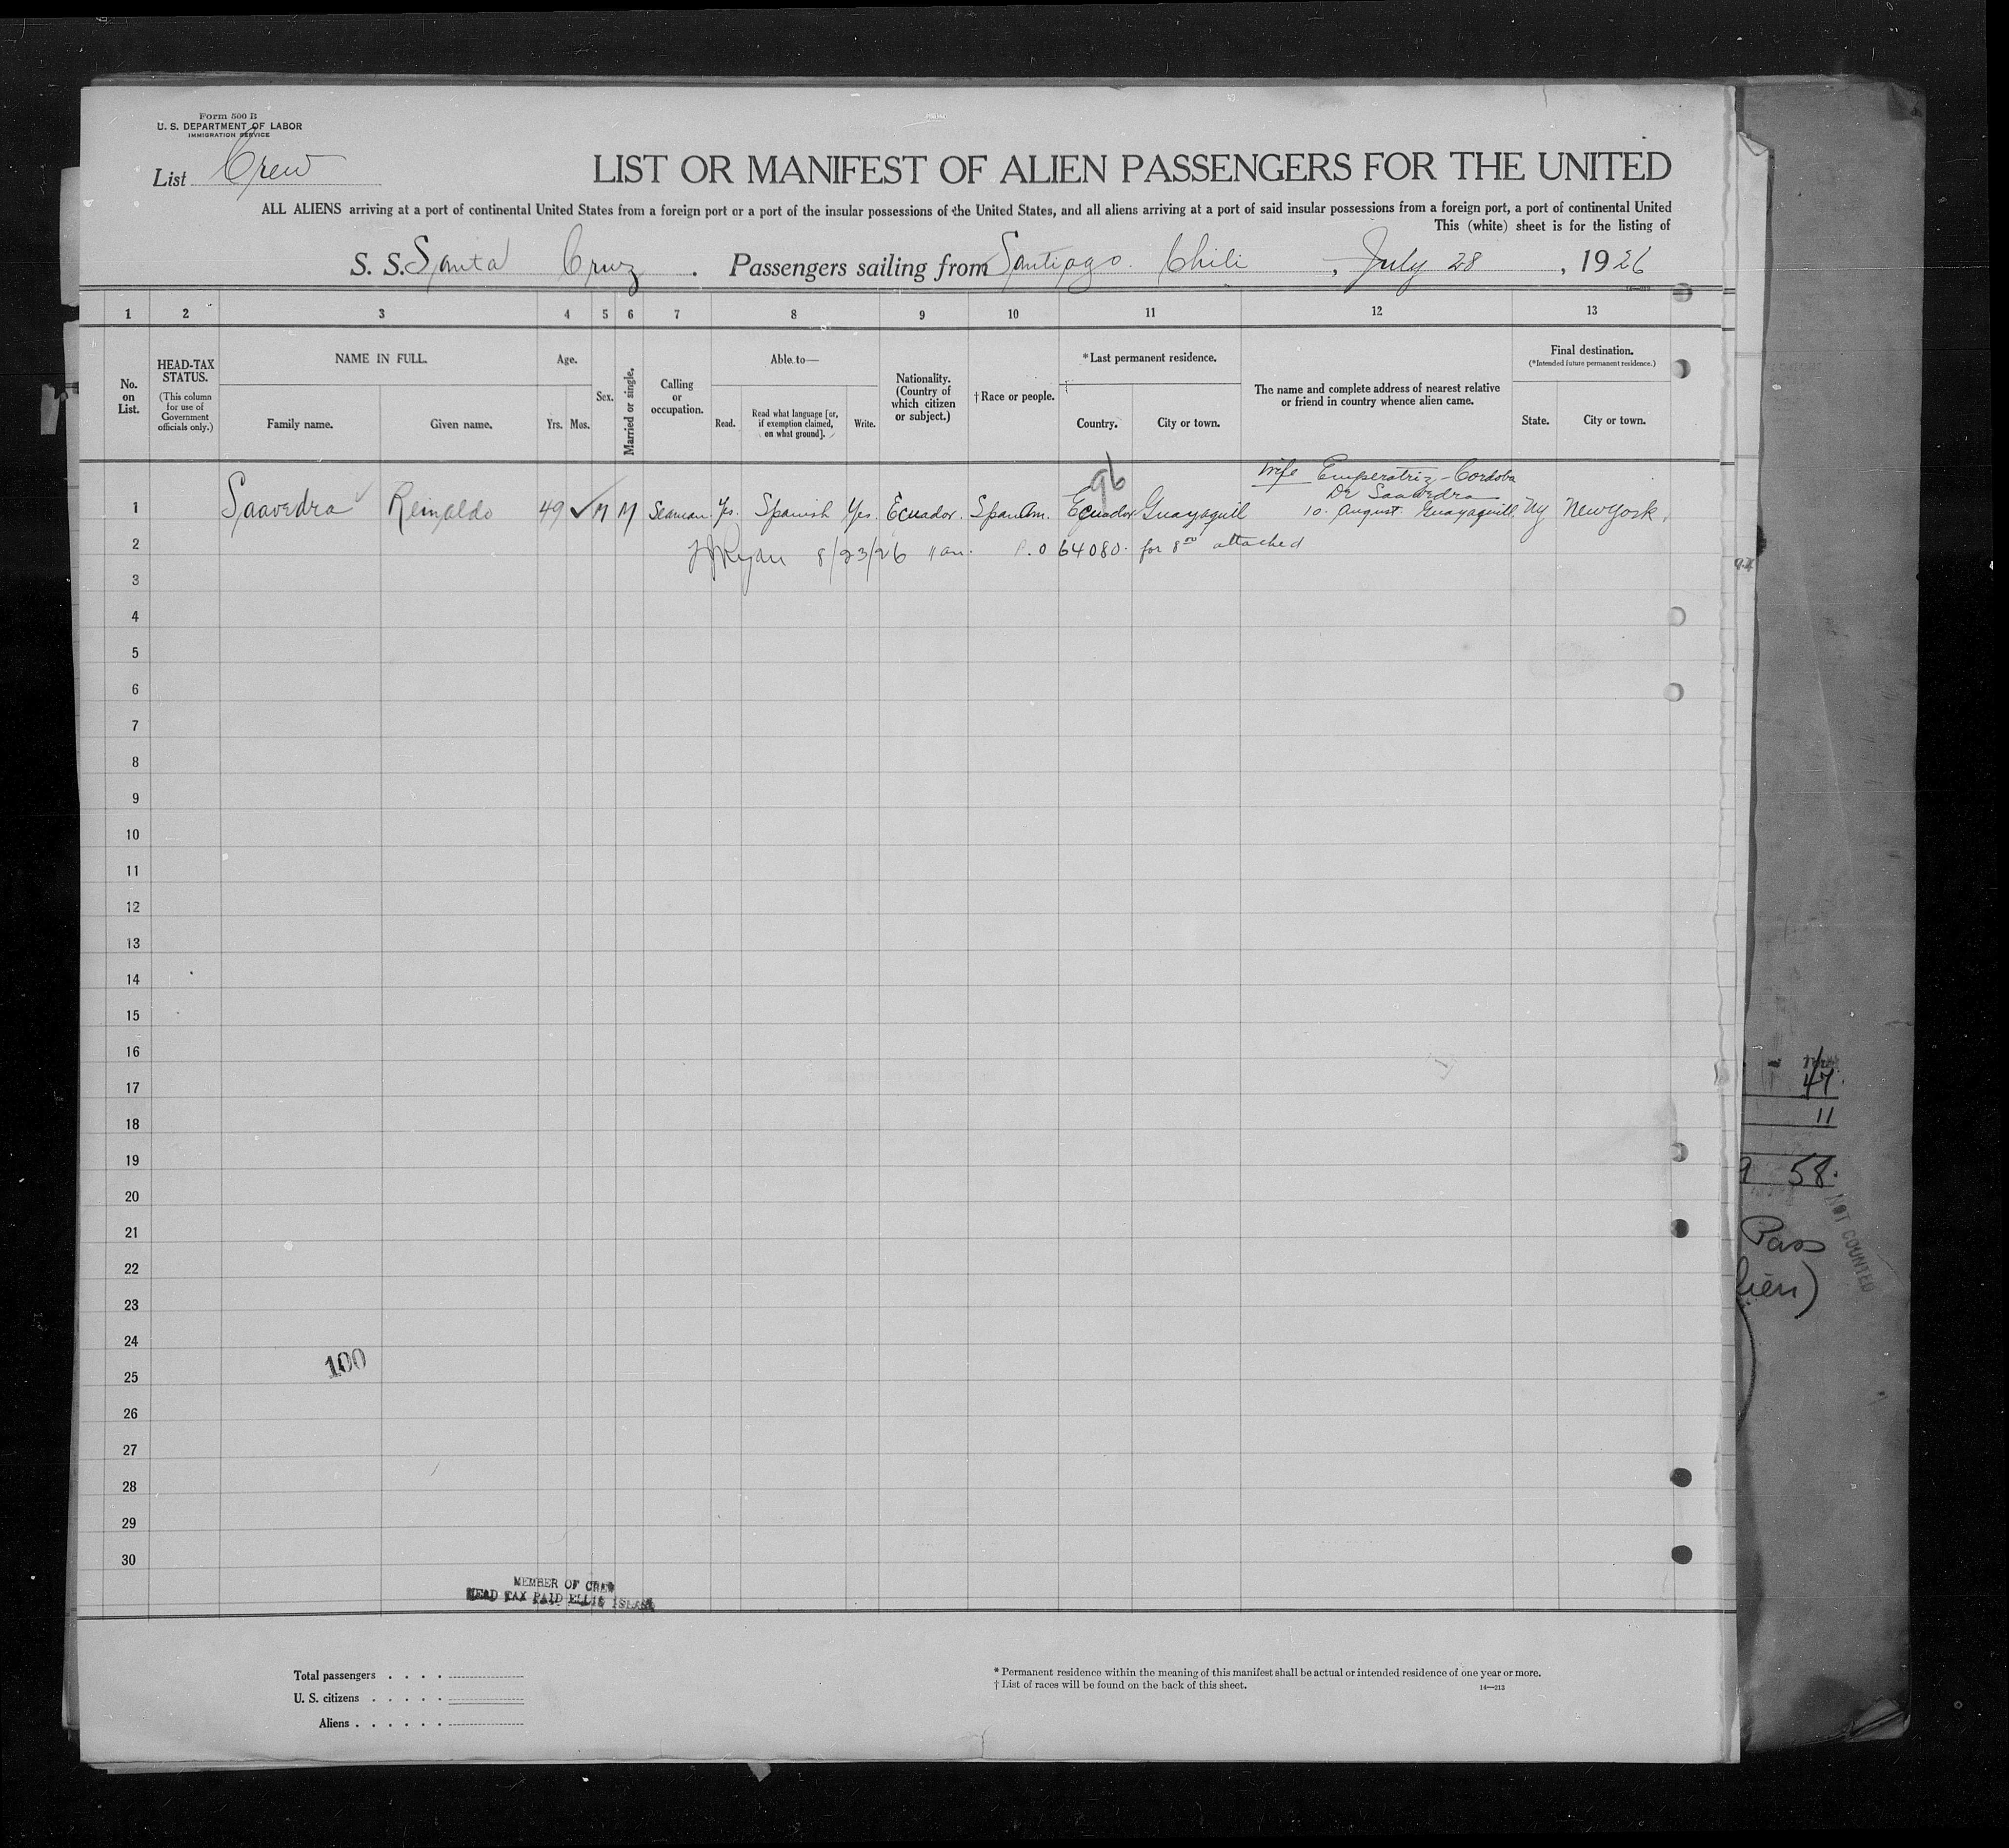 Form 500 B
U. S. DEPARTMENT OF LABOR
IMMIGRATION SERVICE
List Crew
LIST OR MANIFEST OF ALIEN PASSENGERS FOR THE UNITED
ALL ALIENS arriving at a port of continental United States from a foreign port or a port of the insular possessions of the United States, and all aliens arriving at a port of said insular possessions from a foreign port, a port of continental United
This (white) sheet is for the listing of
S. S. Santa Cruz . Passengers sailing from Santiago. Chili , July 28 , 1926
1 2 3 4 5 6 7 8 9 10 11 12 13
No. on List.
HEAD-TAX STATUS.
(This column for use of Government officials only.)
NAME IN FULL.
Family name. Given name.
Age.
Yrs. Mos.
Sex.
Married or single.
Calling or occupation.
Able to—
Read.
Read what language [or, if exemption claimed, on what ground].
Write.
Nationality. (Country of which citizen or subject.)
† Race or people.
* Last permanent residence.
Country. City or town.
The name and complete address of nearest relative or friend in country whence alien came.
Final destination.
(*Intended future permanent residence.)
State. City or town.
96
wife Emperatriz Cordoba
De Saavedra
1 Saavedra ✓ Reinaldo 49 ✓ M M Seaman Yes. Spanish Yes. Ecuador. Span Am. Ecuador Guayaquil 10. August. Guayaquill. NY New York.
2 JJRyan 8/23/26 64080. for 8⁰⁰ attached
3
4
5
6
7
8
9
10
11
12
13
14
15
16
17
18
19
20
21
22
23
24
100
25
26
27
28
29
30
MEMBER OF CREW
HEAD TAX PAID ELLIS ISLAND
Total passengers . . . .
U. S. citizens . . . . .
Aliens . . . . . .
* Permanent residence within the meaning of this manifest shall be actual or intended residence of one year or more.
† List of races will be found on the back of this sheet.
14—213
47.
11
9 58.
NOT COUNTED
Pass
lien)